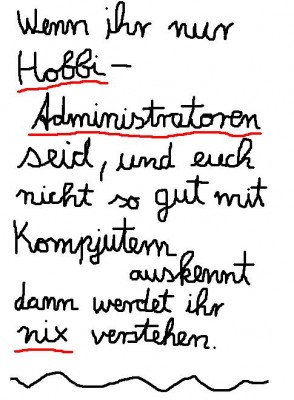 Wenn ihr nur
Hobbi-
Administratoren
seid, und euch
nicht so gut mit
Kompjutern
auskennt
dann werdet ihr
nix verstehen.